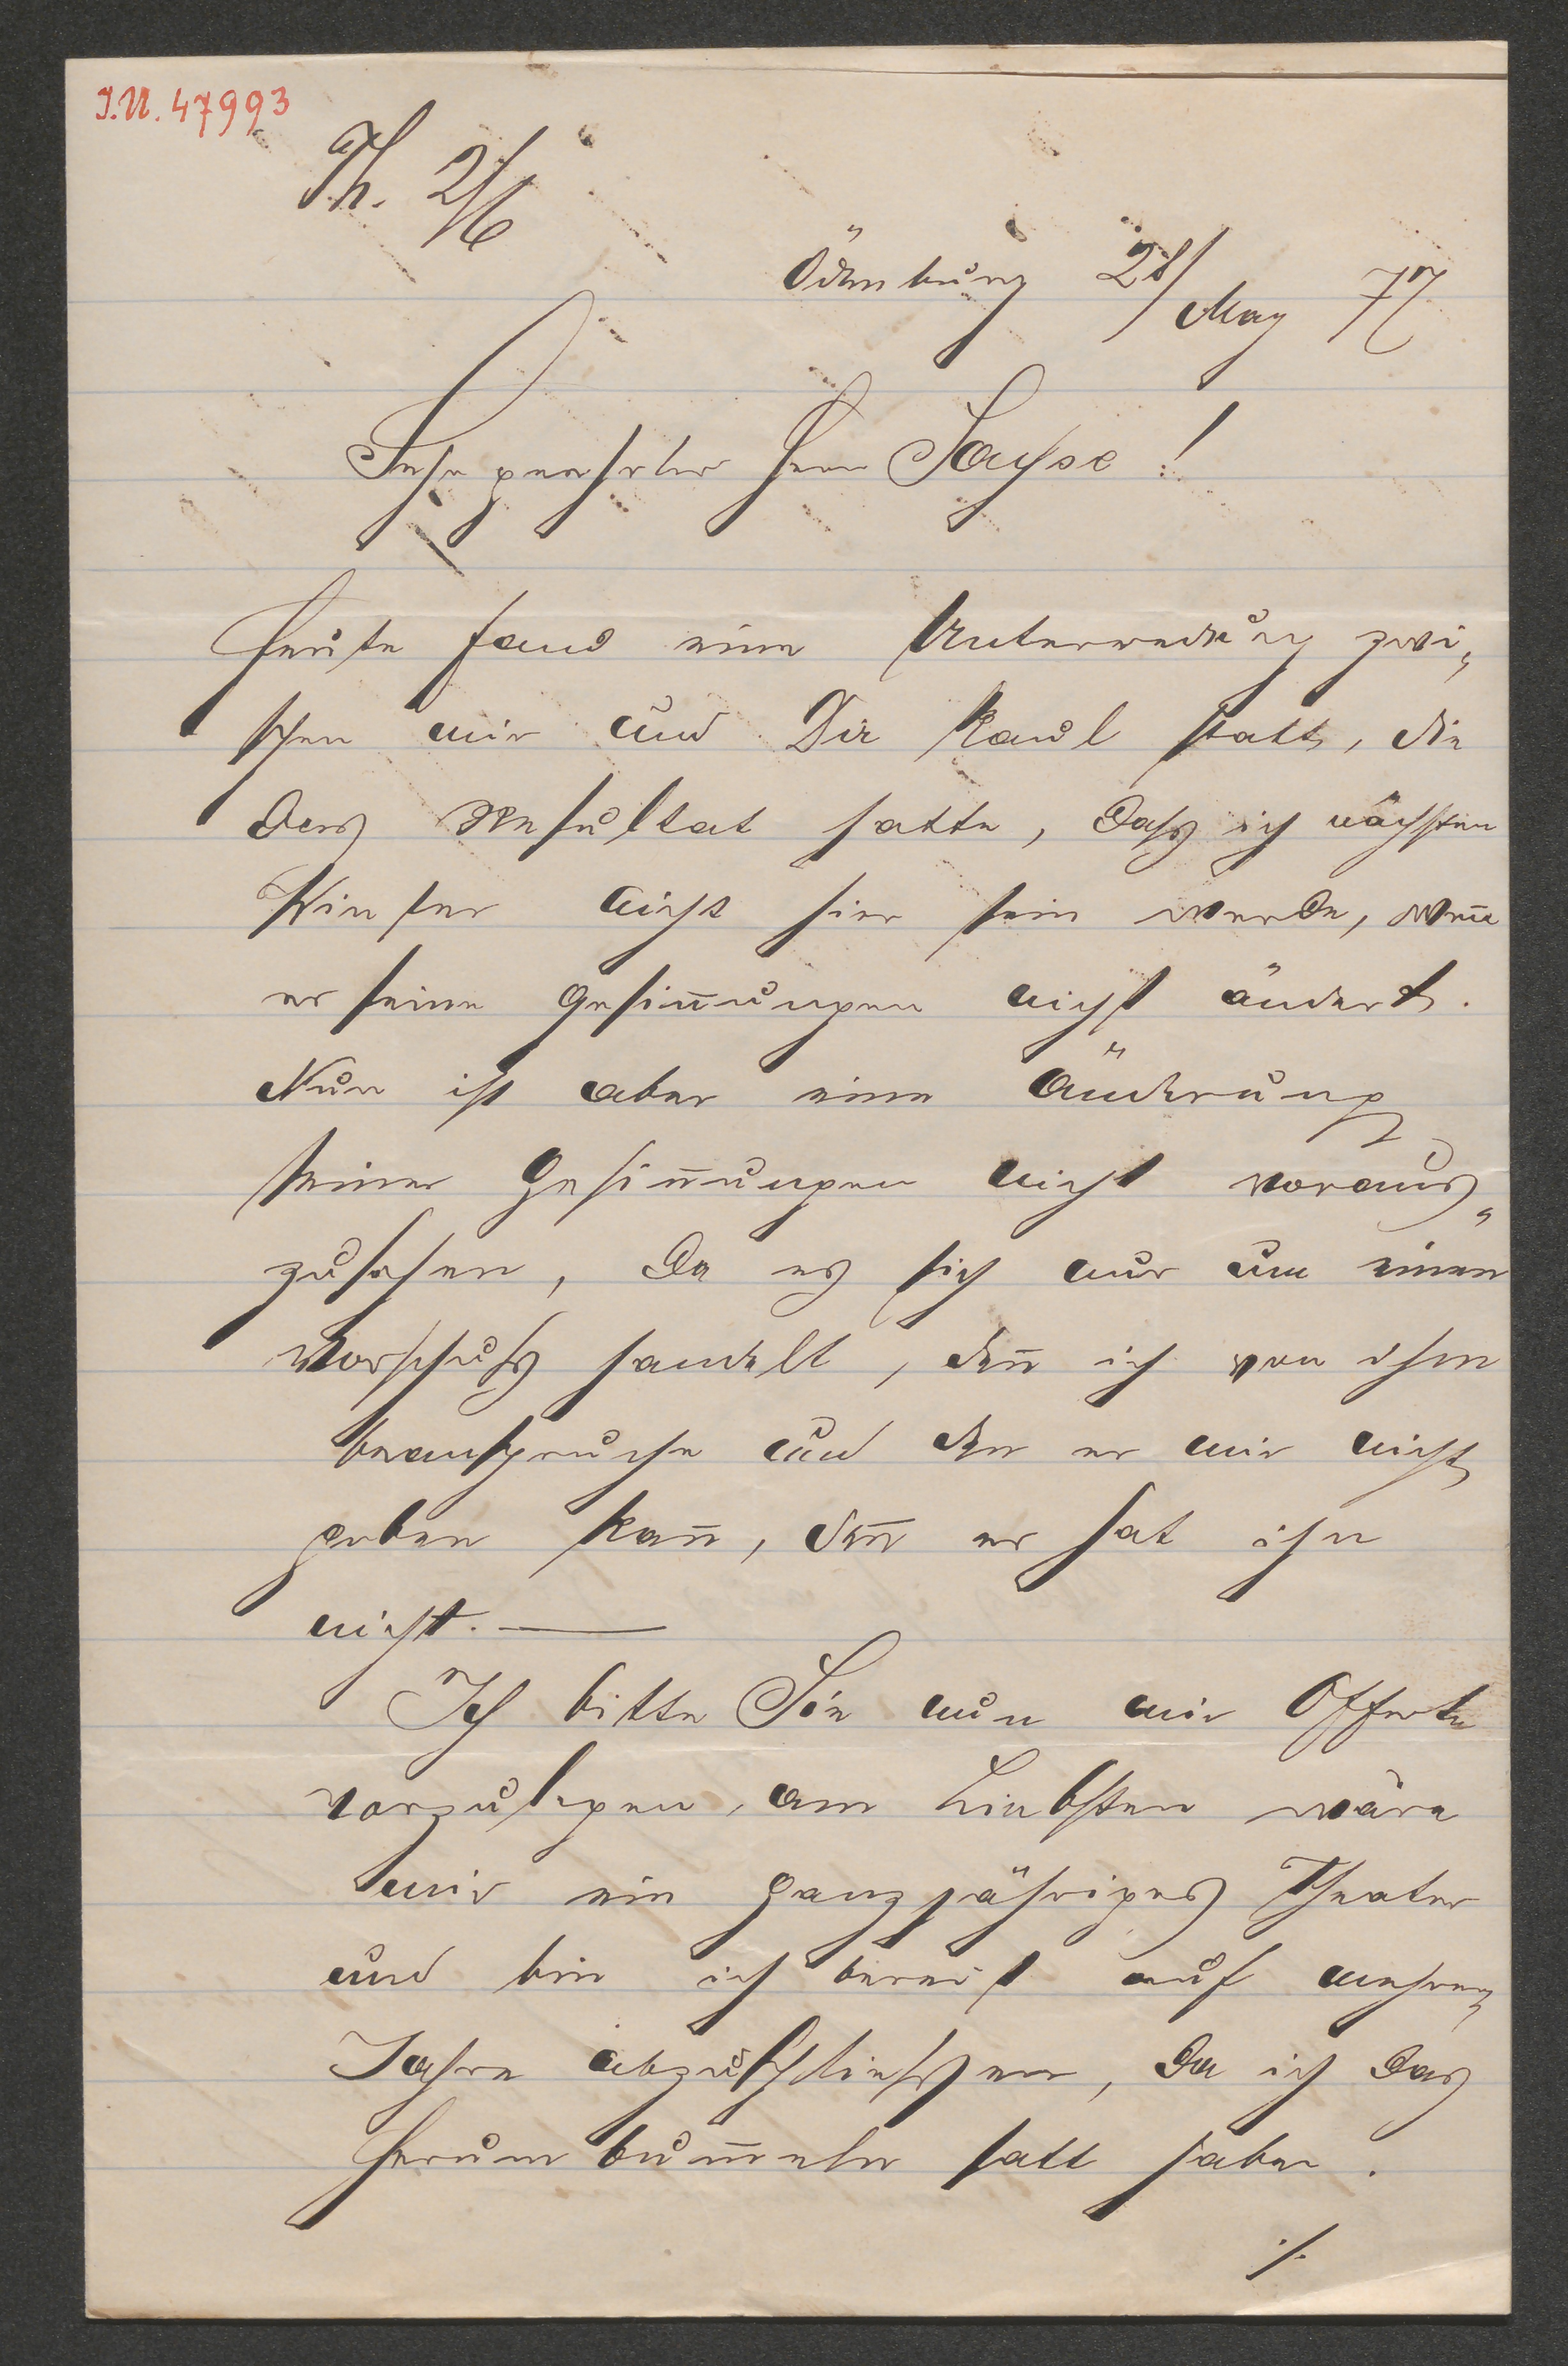 I.N. 47993
Th. 2/6
Ödenburg 28/May 77
Sehr geehrter Herr Sachse!
Heute fand eine Unterredung zwi„
schen mir und Dir Raul statt, die
das Resultat hatte, dass ich nächsten
Winter nicht hier sein werde, weñ
er seine Gesiñungen nicht ändert.
Nun ist aber eine Änderung
seiner Gesiñungen nicht voraus„
zusehen, da es sich nur um einen
Vorschuß handelt, deñ ich von ihm
beanspruche und den er mir nicht
geben kañ, deñ er hat ihn
nicht. —
Ich bitte Sie nun mir Offerte
vorzulegen, am Liebsten wäre
mir ein ganzjähriges Theater
und bin ich bereit auf mehrere
Jahre abzuschliessen, da ich das
Herumbum̄eln satt habe.
./.